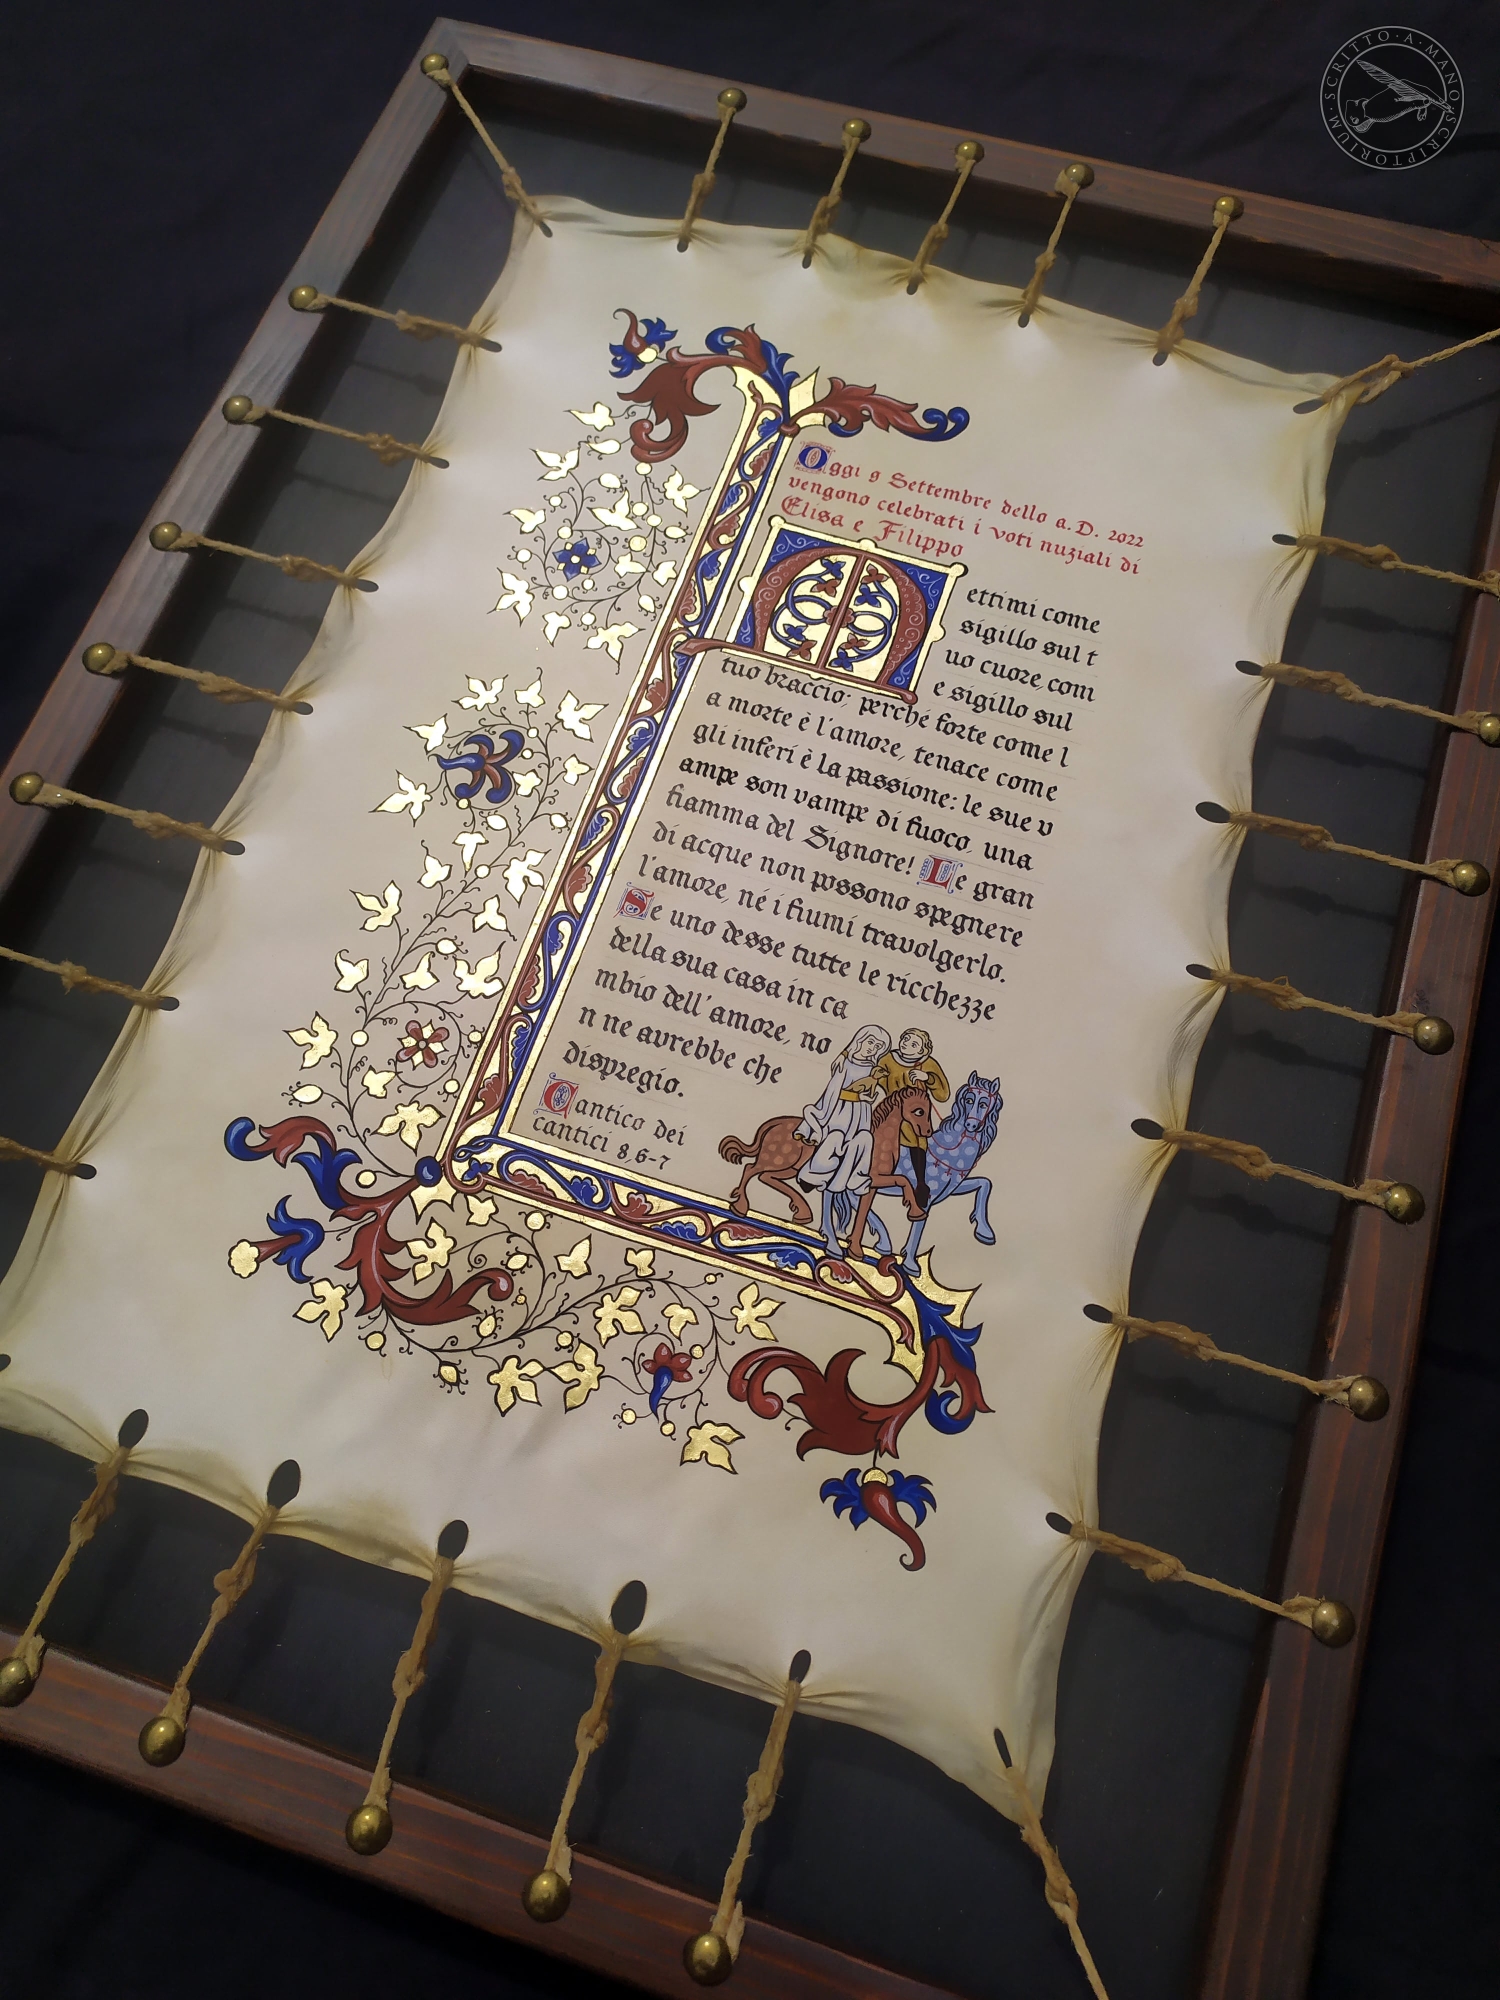 Oggi 9 Settembre dello a.D. 2022
vengono celebrati i voti nuziali di
Elisa e Filippo
Mettimi come
sigillo sul t
uo cuore, com
e sigillo sul
tuo braccio; perché forte come l
a morte è l'amore, tenace come
gli inferi è la passione: le sue v
ampe son vampe di fuoco, una
fiamma del Signore! Le gran
di acque non possono spegnere
l'amore, né i fiumi travolgerlo.
Se uno desse tutte le ricchezze
della sua casa in ca
mbio dell'amore, no
n ne avrebbe che
dispregio.
Cantico dei
cantici 8,6-7
SCRITTO·A·MANO·SCRIPTORIUM·